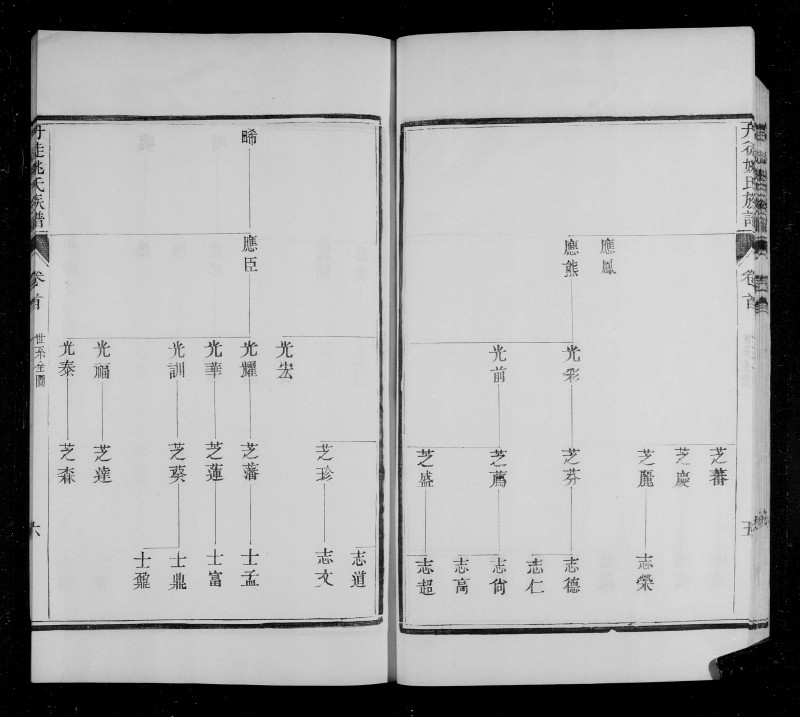 姚氏族譜
卷首
五
應鳳
應熊
光彩
光前
芝蕃
芝慶
芝麗
芝芬
芝薦
芝盛
志榮
志德
志仁
志尙
志高
志超
晞
應臣
光宏
光耀
光華
光訓
光福
光泰
芝珍
芝藩
芝蓮
芝葵
芝達
芝森
志道
志文
士孟
士富
士鼎
士鼐
姚氏族譜
卷首
世系全圖
六